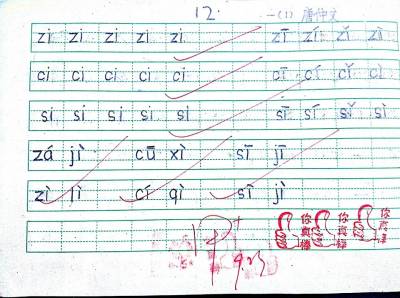 12.
一(1) 唐仲文
zi zi zi zi zi zī zí zǐ zì
ci ci ci ci ci cī cí cǐ cì
si si si si si sī sí sǐ sì
zá jì cū xì sī jī
zì lì cí qì sī jì
你真棒 你真棒 你真棒